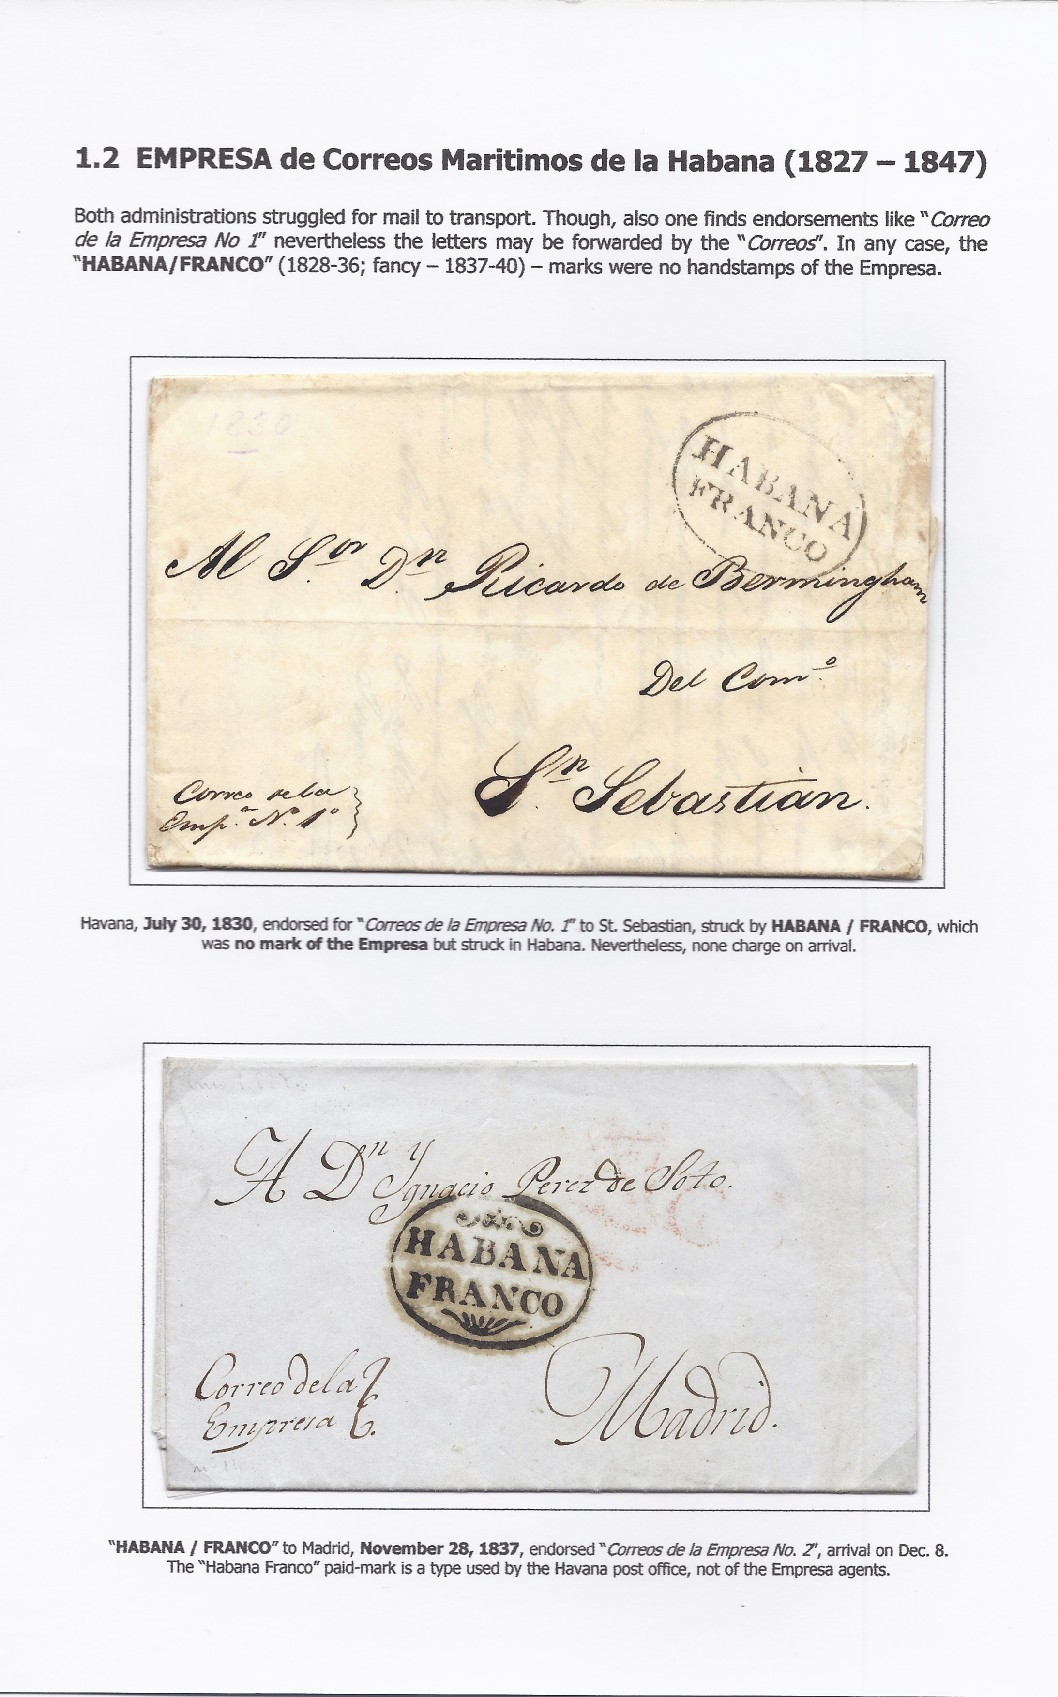 1.2 EMPRESA de Correos Maritimos de la Habana (1827 – 1847)
Both administrations struggled for mail to transport. Though, also one finds endorsements like "Correo
de la Empresa No 1" nevertheless the letters may be forwarded by the "Correos". In any case, the
"HABANA/FRANCO" (1828-36; fancy – 1837-40) – marks were no handstamps of the Empresa.
1830
HABANA
FRANCO
Al S.or D.n Ricardo de Bermingham
Del Com.o
S.n Sebastian.
Correo de la
Emp.a N.o 1o
Havana, July 30, 1830, endorsed for "Correos de la Empresa No. 1" to St. Sebastian, struck by HABANA / FRANCO, which
was no mark of the Empresa but struck in Habana. Nevertheless, none charge on arrival.
A Dn Ygnacio Perez de Soto.
HABANA
FRANCO
Correo de la
Empresa
Madrid.
"HABANA / FRANCO" to Madrid, November 28, 1837, endorsed "Correos de la Empresa No. 2", arrival on Dec. 8.
The "Habana Franco" paid-mark is a type used by the Havana post office, not of the Empresa agents.